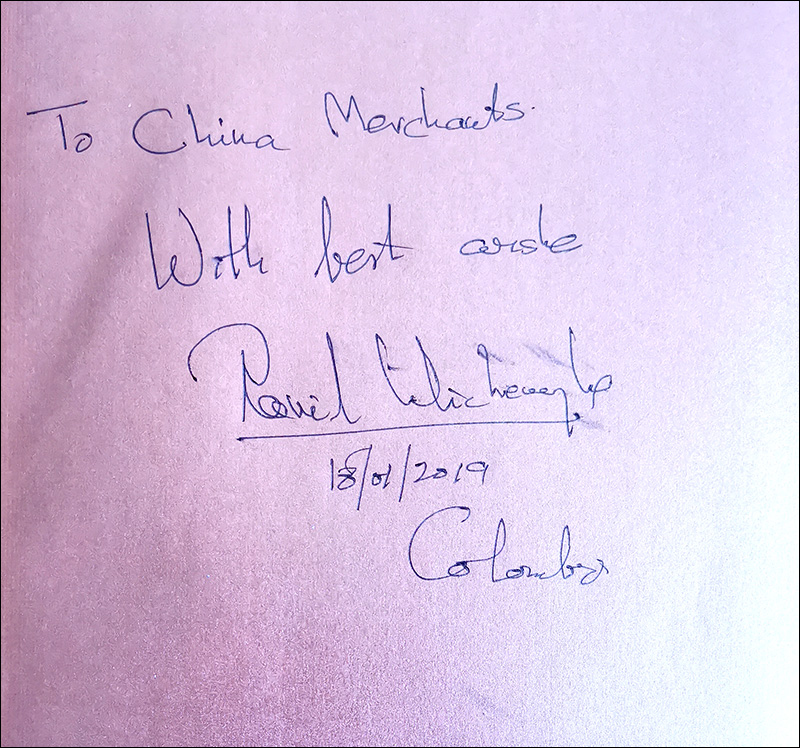 To China Merchants.
With best wishe
Ranil Wickremesinghe
18/01/2019
Colombo